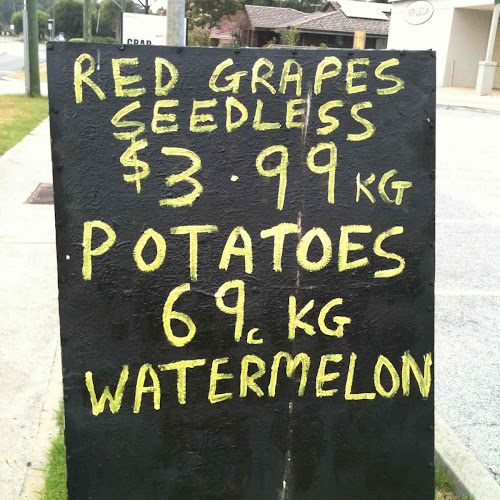 RED GRAPES
SEEDLESS
$3.99 KG
POTATOES
69c KG
WATERMELON